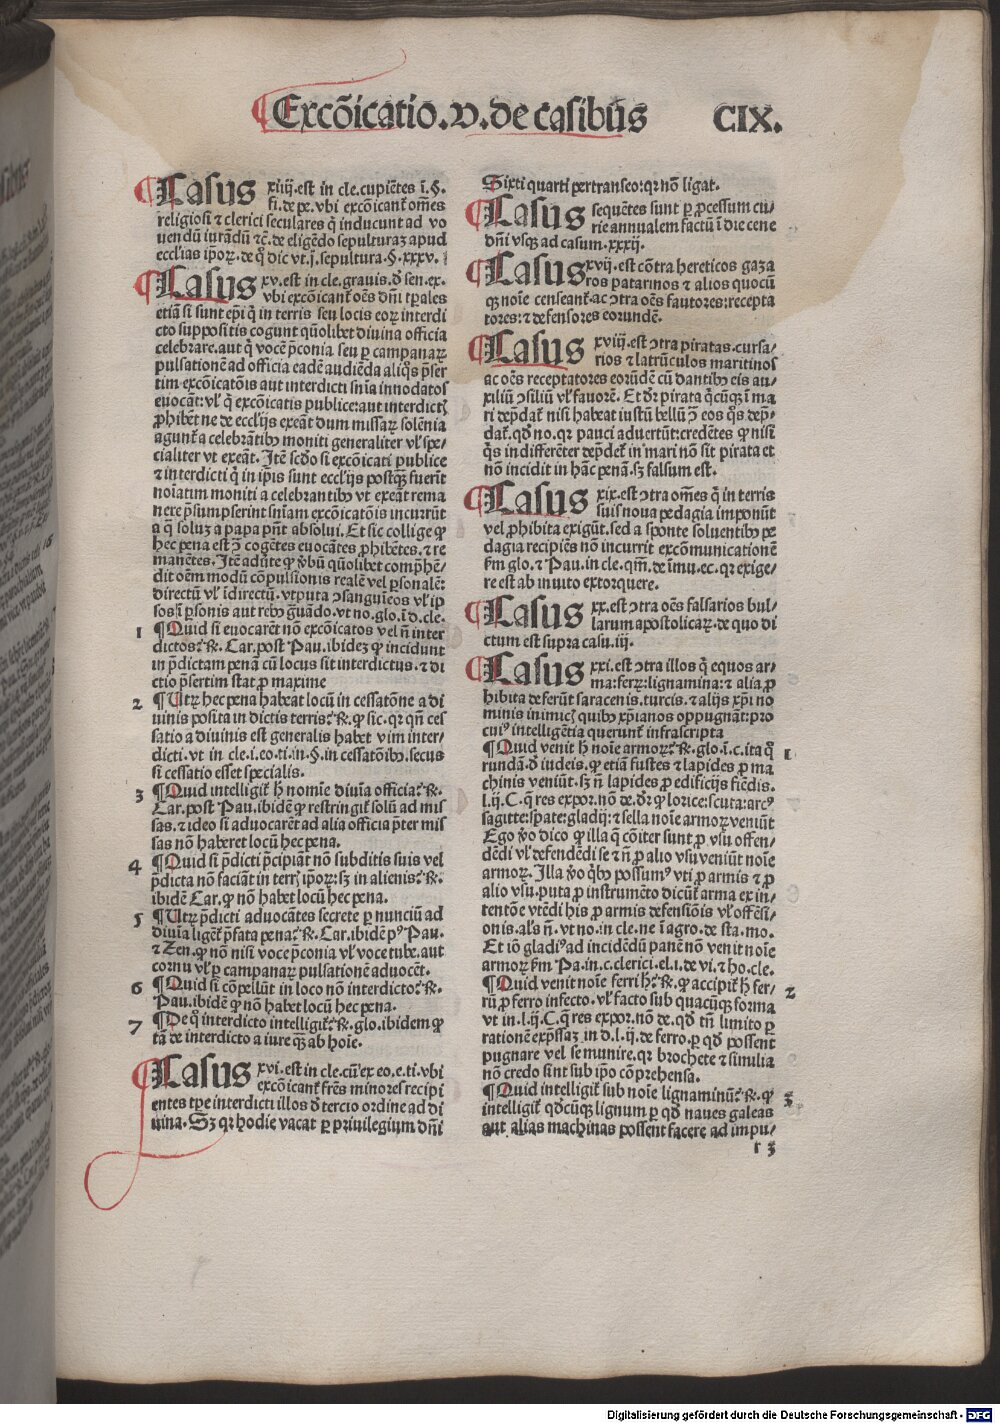 Excōicatio.v.de casibus CIX.
Casus xiiij.est in cle.cupiētes ī.§.
si.de pe.vbi excōicant̄ om̄es
religiosi ⁊ clerici seculares q̄ inducunt ad vo
uendū iurādū ⁊c̄.de eligēdo sepulturaꝫ apud
eccl'ias ip̄oꝝ.de q̄ dic vt.j.sepultura.§.xxxv.
Casus xv.est in cle.grauis.d̄ sen.ex.
vbi excōicant̄ oēs dn̄i tp̄ales
etiā si sunt ep̄i q̄ in terris seu locis eoꝝ interdi
cto suppositis cogunt quōlibet diuina officia
celebrare.aut q̄ vocē p̄conia seu ꝑ campanaꝝ
pulsationē ad officia eadē audiēda aliq̄s p̄ser
tim excōicatōis aut interdicti sn̄ia innodatos
euocāt:vl' q̄ excōicatis publice:aut interdictꝭ
ꝓhibēt ne de eccl'ijs exeāt dum missaꝝ solēnia
agunt̄ a celebrātibꝰ moniti generaliter vl' spe-
cialiter vt exeāt. Itē scd̄o si excōicati publice
⁊ interdicti q̄ in ip̄is sunt eccl'ijs postqꝫ fuerīt
noīatim moniti a celebrantibꝰ vt exeāt rema
nere p̄sumpserint sn̄iam excōicatōis incurrūt
a q̄ soluꝫ a papa pn̄t absolui. Et sic collige ꝙ
hec pena est ꝯ̄ cogētes euocātes ꝓhibētes.⁊ re
manētes. Itē aduerte ꝙ v̄bū quōlibet comp̄hē-
dit oēm modū cōpulsionis realē vel ꝑsonalē:
directū vl' īdirectū.vtputa ꝯsanguīeos vl' ip
sos ī ꝑsonis aut rebꝰ grauādo.vt no.glo.ī d.cle.
1 ¶Quid si euocarēt nō excōicatos vel n̄ inter
dictos?℟. Car.post Pau.ibideꝫ ꝙ incidunt
in p̄dictam penā cū locus sit interdictus.⁊ di
ctio p̄sertim stat ꝓ maxime
2 ¶Utꝝ hec pena habeat locū in cessatōne a di
uinis posita in dictis terris?℟.ꝙ sic.qꝛ qn̄ ces
satio a diuinis est generalis habet vim inter-
dicti.vt in cle.i.eo.ti.in.§.in cessatōibꝰ.secus
si cessatio esset specialis.
3 ¶Quid intelligit̄ h̄ nomīe diuīa officia?℟.
Car.post Pau.ibidē ꝙ restringit̄ solū ad mis
sas.⁊ ideo si aduocarēt ad alia officia p̄ter mis
sas nō haberet locū hec pena.
4 ¶Quid si p̄dicti p̄cipiāt nō subditis suis vel
p̄dicta nō faciāt in terrꝭ ip̄oꝝ:sꝫ in alienis?℟.
ibidē Car.ꝙ nō habet locū hec pena.
5 ¶Utꝝ p̄dicti aduocātes secrete ꝑ nunciū ad
diuīa ligēt p̄fata pena?℟. Car.ibidē pꝰ Pau.
⁊ Zen.ꝙ nō nisi voce p̄conia vl' voce tube.aut
cornu vl' ꝑ campanaꝝ pulsationē aduocēt.
6 ¶Quid si cōpellūt in loco nō interdicto?℟.
Pau.ibidē ꝙ nō habet locū hec pena.
7 ¶De q̄ interdicto intelligit̄?℟.glo.ibidem ꝙ
tā de interdicto a iure qꝫ ab hoīe.
Casus xvi.est in cle.cū ex eo.e.ti.vbi
excōicant̄ fr̄es minores recipi
entes tp̄e interdicti illos d̄ tercio ordine ad di
uina. Sꝫ qꝛ hodie vacat ꝑ priuilegium dn̄i
Sixti quarti pertranseo:qꝛ nō ligat.
Casus sequētes sunt ꝑ ꝓcessum cu-
rie annualem factū ī die cene
dn̄i vsqꝫ ad casum.xxxij.
Casus xvij.est cōtra hereticos gaza
ros patarinos ⁊ alios quocū
qꝫ noīe censeant̄.ac ꝯtra oēs fautores:recepta
tores:⁊ defensores eorundē.
Casus xviij.est ꝯtra piratas.cursa-
rios ⁊ latrūculos maritinos
ac oēs receptatores eorūdē cū dantibꝰ eis au-
xiliū ꝯsiliū vl' fauorē. Et dr̄ pirata q̄cūqꝫ ī ma
ri dep̄dat̄ nisi habeat iustū bellū ꝯ̄ eos q̄s dep̄-
dat̄.qd̄ no.qꝛ pauci aduertūt:credētes ꝙ nisi
q̄s indifferēter dep̄det̄ in mari nō sit pirata et
nō incidit in hāc penā.sꝫ falsum est.
Casus xix.est ꝯtra om̄es q̄ in terris
suis noua pedagia imponūt
vel ꝓhibita exigūt.sed a sponte soluentibꝰ pe
dagia recipiēs nō incurrit excōmunicationē
ẜm glo.⁊ Pau.in cle.qm̄.de īmu.ec.qꝛ exige-
re est ab inuito extorquere.
Casus xx.est ꝯtra oēs falsarios bul-
larum apostolicaꝝ.de quo di
ctum est supra casu.iij.
Casus xxi.est ꝯtra illos q̄ equos ar-
ma:ferꝝ:lignamina:⁊ alia ꝓ
hibita deferūt saracenis.turcis.⁊ alijs xp̄i no
minis inimicꝭ quibꝰ xp̄ianos oppugnāt:pro
cuiꝰ intelligētia querunt̄ infrascripta
¶Quid venit h̄ noīe armoꝝ?℟.glo.ī.c.ita q̄ 1
rundā.d̄ iudeis.ꝙ etiā fustes ⁊ lapides ꝓ ma
chinis veniūt.sꝫ n̄ lapides ꝓ edificijs fiēdis.
l.ij.C.q̄ res expor.nō de.dr̄ ꝙ lorice:scuta:arcꝰ
sagitte:spate:gladij:⁊ sella noīe armoꝝ veniūt
Ego v̄o dico ꝙ illa q̄ cōiter sunt ꝓ vsu offen-
dēdi vl' defendēdi se ⁊ n̄ ꝓ alio vsu veniūt noīe
armoꝝ. Illa v̄o q̄bꝰ possumꝰ vti ꝓ armis ⁊ ꝓ
alio vsu.puta ꝓ instrumēto dicūt̄ arma ex in-
tentōe vtēdi his ꝓ armis defensiōis vl' offēsi-
onis.al's n̄.vt no.in cle.ne ī agro.de sta.mo.
Et iō gladiꝰ ad incidēdū panē nō venit noīe
armoꝝ ẜm Pa.in.c.clerici.el.i.de vi.⁊ ho.cle.
¶Quid venit noīe ferri h̄?℟.ꝙ accipit̄ h̄ fer-
rū ꝓ ferro infecto.vl' facto sub quacūqꝫ forma 2
vt in.l.ij.C.q̄ res expor.nō de.qd̄ tn̄ limito ꝑ
rationē exp̄ssaꝫ in d.l.ij.de ferro.ꝑ qd̄ possent
pugnare vel se munire.qꝛ brochete ⁊ similia
nō credo sint sub ip̄o cōprehensa.
¶Quid intelligit̄ sub noīe lignaminū?℟.ꝙ 3
intelligit̄ qd̄cūqꝫ lignum ꝑ qd̄ naues galeas
aut alias machinas possent facere ad impu-
r 3
Digitalisierung gefördert durch die Deutsche Forschungsgemeinschaft - DFG